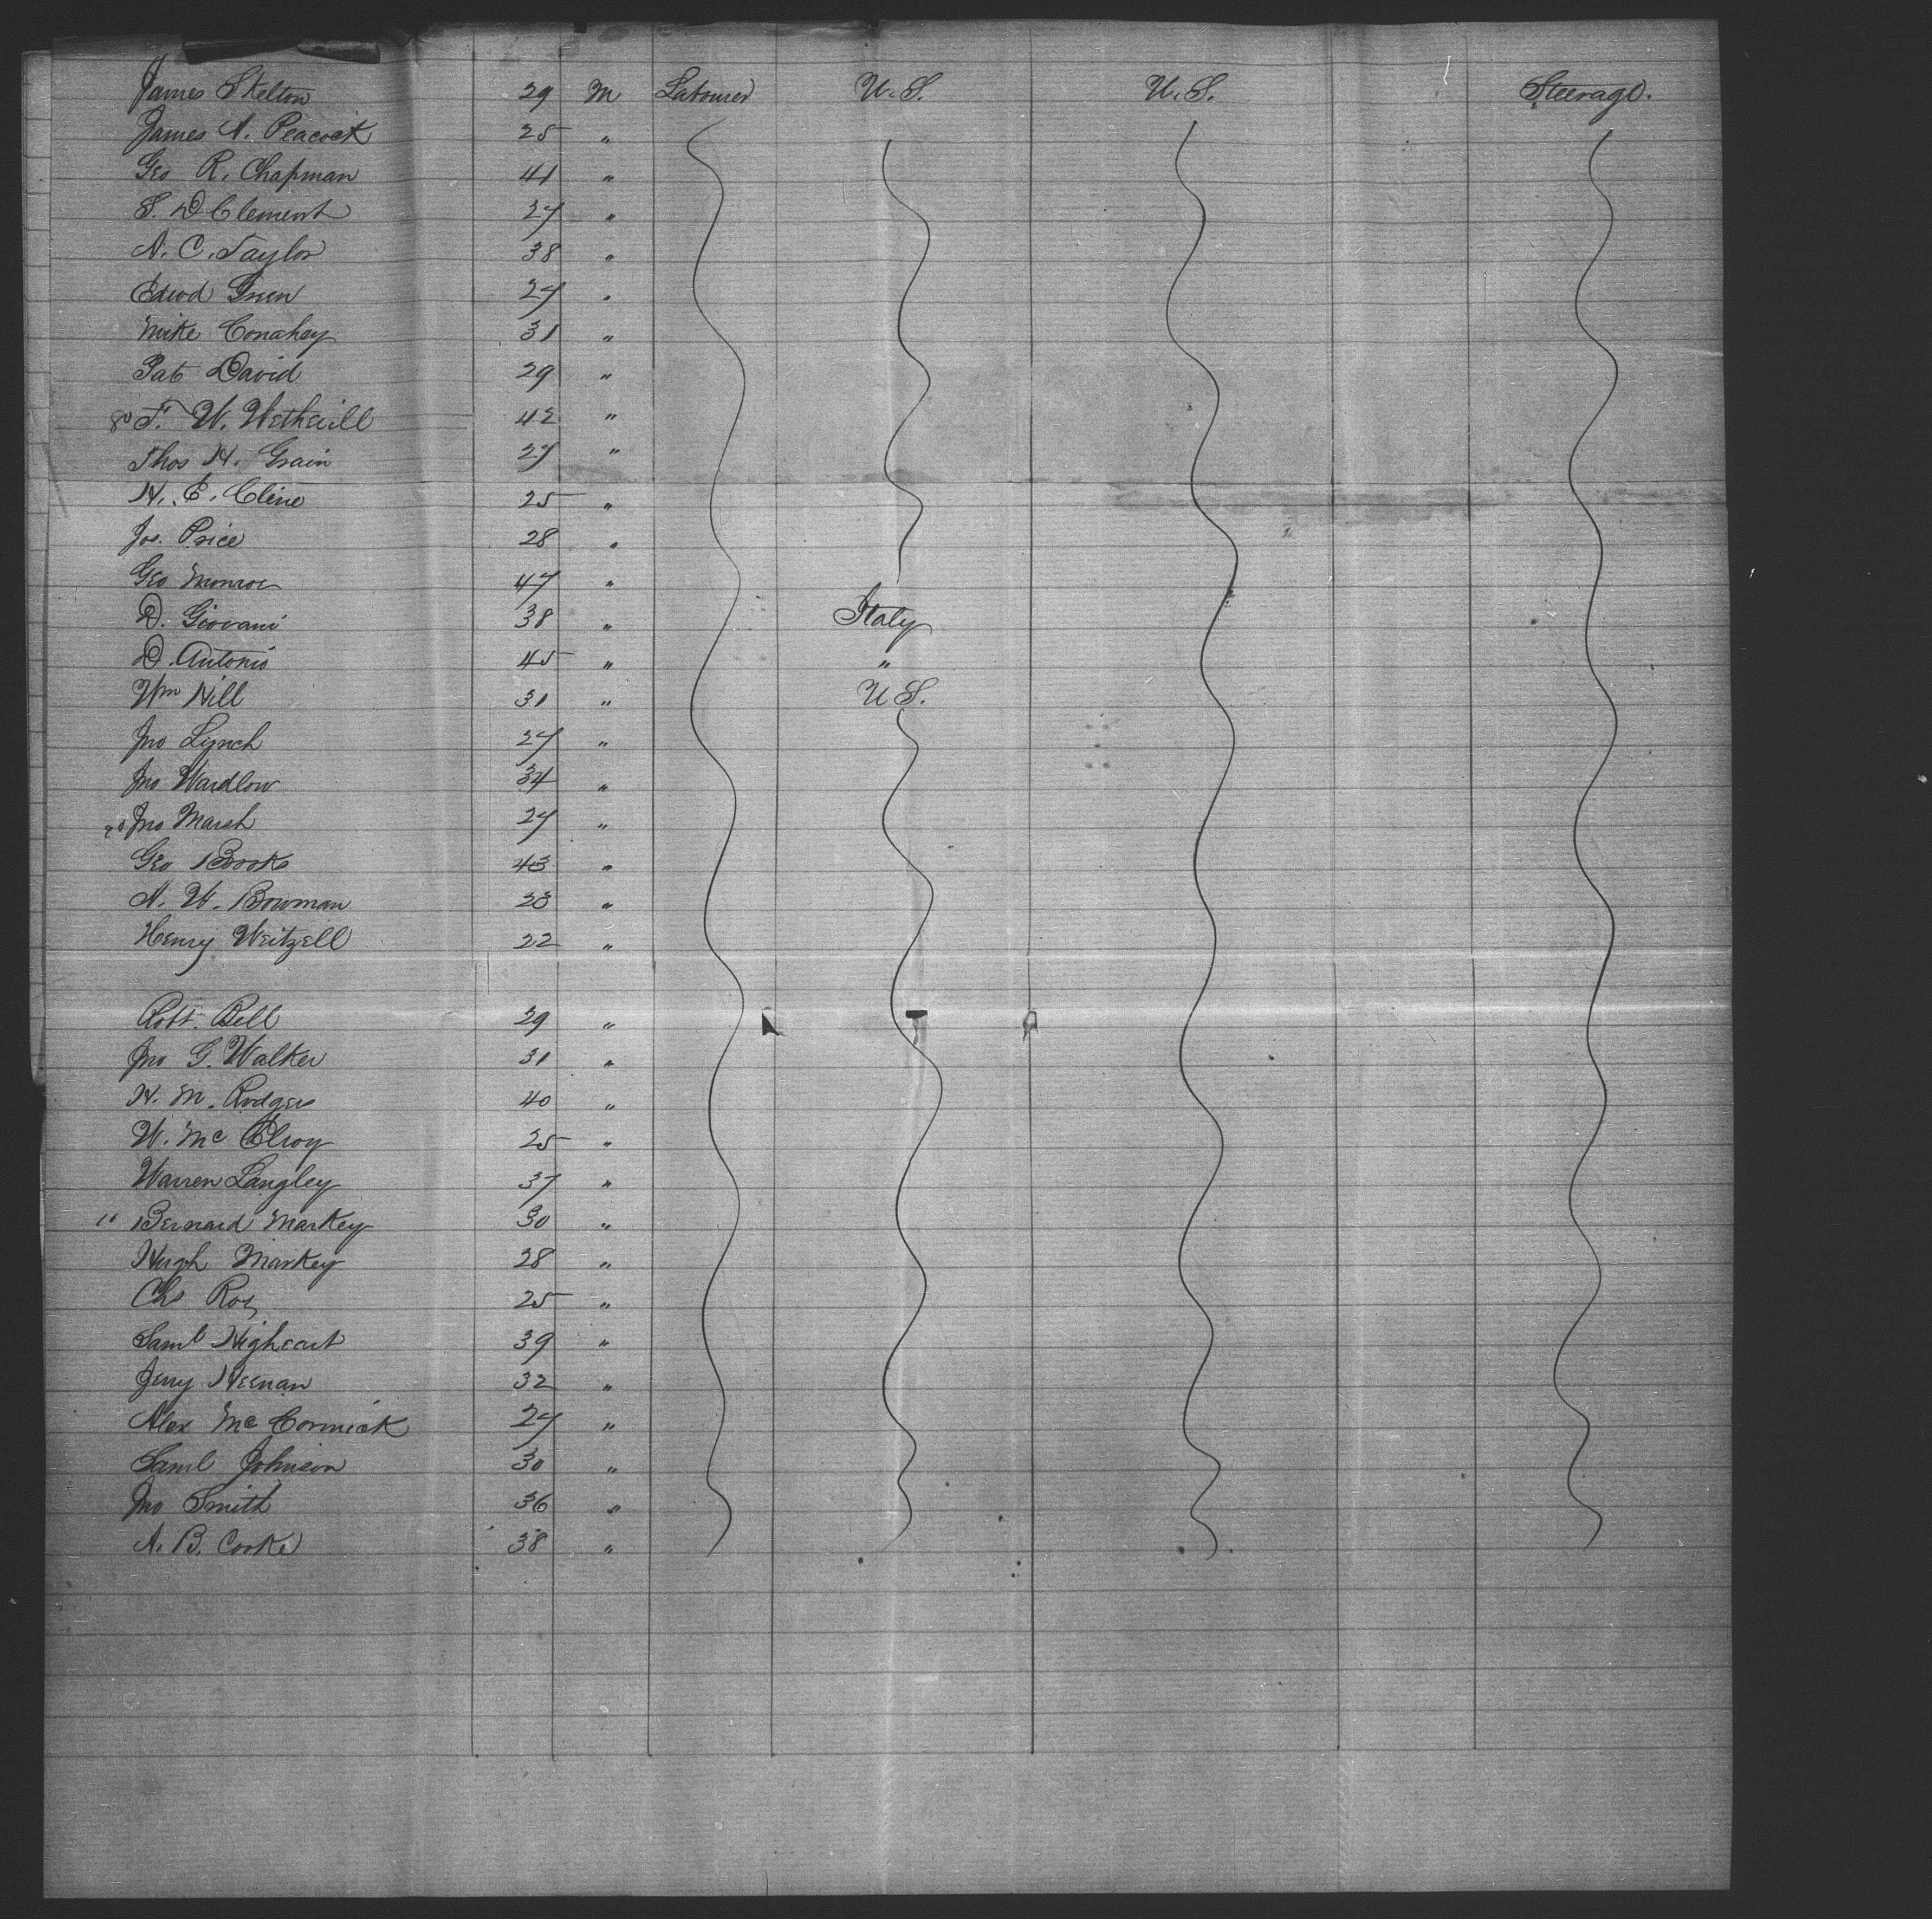 James Skelton 29 M Labourer U.S. U.S. Steerage.
James A. Peacock 25 "
Geo R. Chapman 41 "
S. D Clement 27 "
A. C. Taylor 38 "
Edwd Green 27 "
Mike Conahey 31 "
Pat David 29 "
T. W. Wetherill 42 "
Thos H. Grain 27 "
H. E. Cline 25 "
Jos. Price 28 "
Geo Monroe 47 "
D. Giovani 38 " Italy
D. Antonio 45 " "
Wm Hill 31 " U S.
Jno Lynch 27 "
Jno Wardlow 34 "
20 Jno Marsh 27 "
Geo Brooks 43 "
A. W. Bowman 28 "
Henry Weitzell 22 "
Robt. Bell 29 "
Jno G. Walker 31 "
H. M. Rodgers 40 "
W. Mc Elroy 25 "
Warren Langley 37 "
10 Bernard Markey 30 "
Hugh Markey 28 "
Chs Roy 25 "
Saml Highcart 39 "
Jerry Heenan 32 "
Alex McCormick 27 "
Saml Johnson 30 "
Jno Smith 36 "
A. B. Cooke 38 "